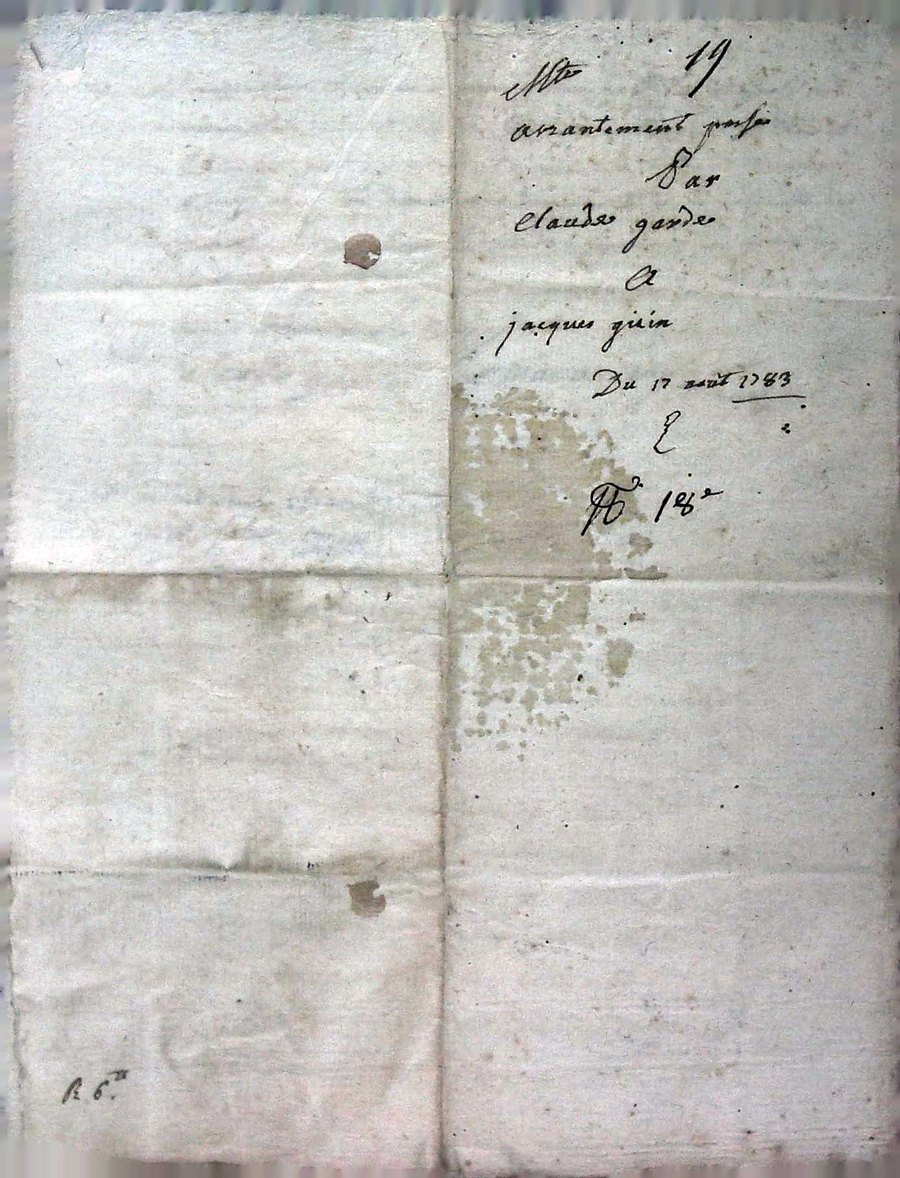 19
arrantement passé
Par
Claude garde
A
jacques giein
Du 17 aout 1783
18e
R 6.